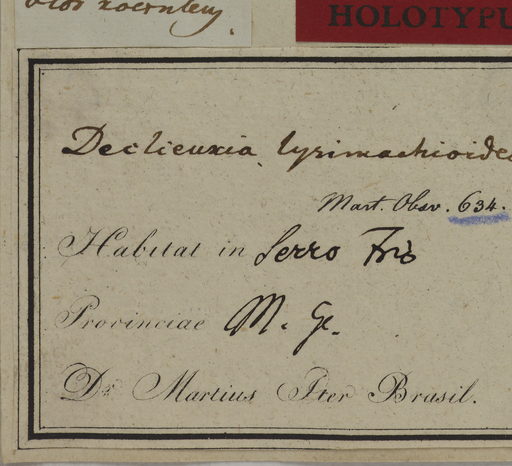 HOLOTYPU
Declieuxia lysimachioides
Mart. Obsv. 634.
Habitat in Serro Frio
Provinciae M. Ge.
Dr. Martius Iter Brasil.